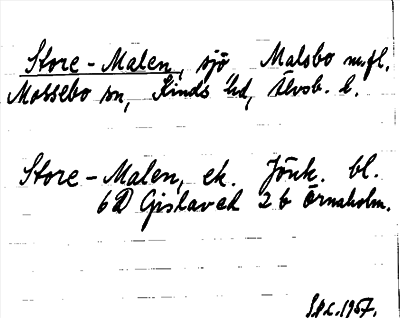 Store-Malen, sjö Malsbo m.fl.
Mossebo sn, Kinds hd, Älvsb. l.
Store-Malen, ek. Jönk. bl.
6D Gislaved 2b Örnaholm.
1957.